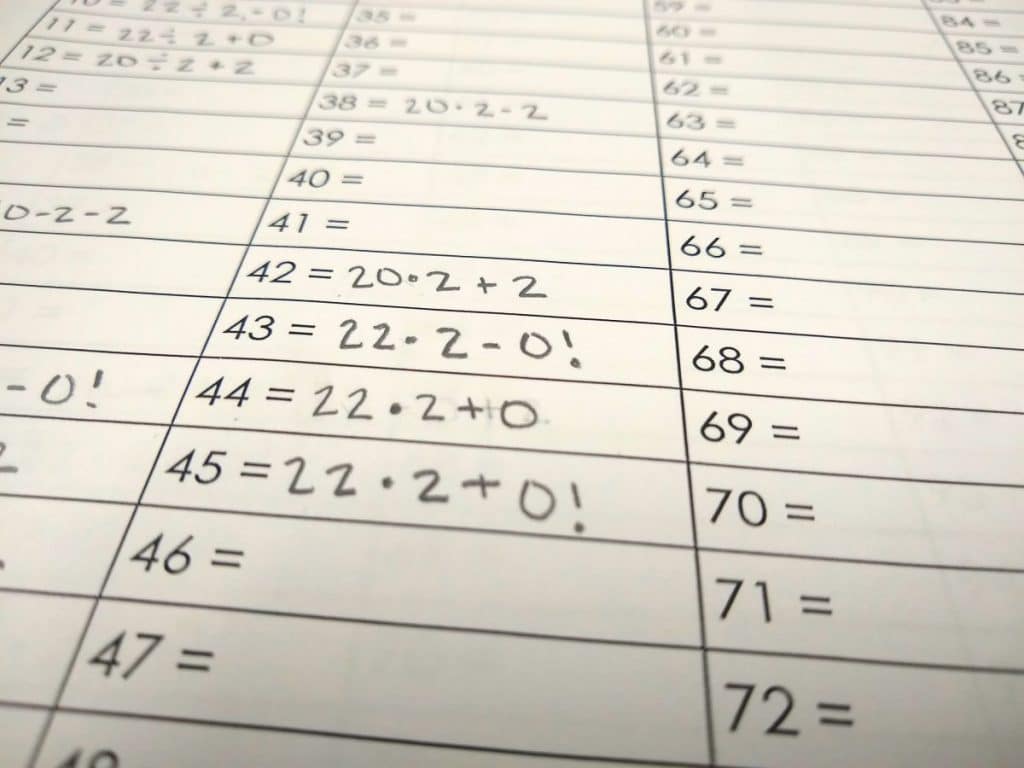 10 = 22 ÷ 2 - 0!
11 = 22 ÷ 2 + 0
12 = 20 ÷ 2 + 2
13 =
=
0-2-2
- 0!
35 =
36 =
37 =
38 = 20·2-2
39 =
40 =
41 =
42 = 20·2+2
43 = 22·2-0!
44 = 22·2+0
45 = 22·2+0!
46 =
47 =
59 =
60 =
61 =
62 =
63 =
64 =
65 =
66 =
67 =
68 =
69 =
70 =
71 =
72 =
84 =
85 =
86 =
87